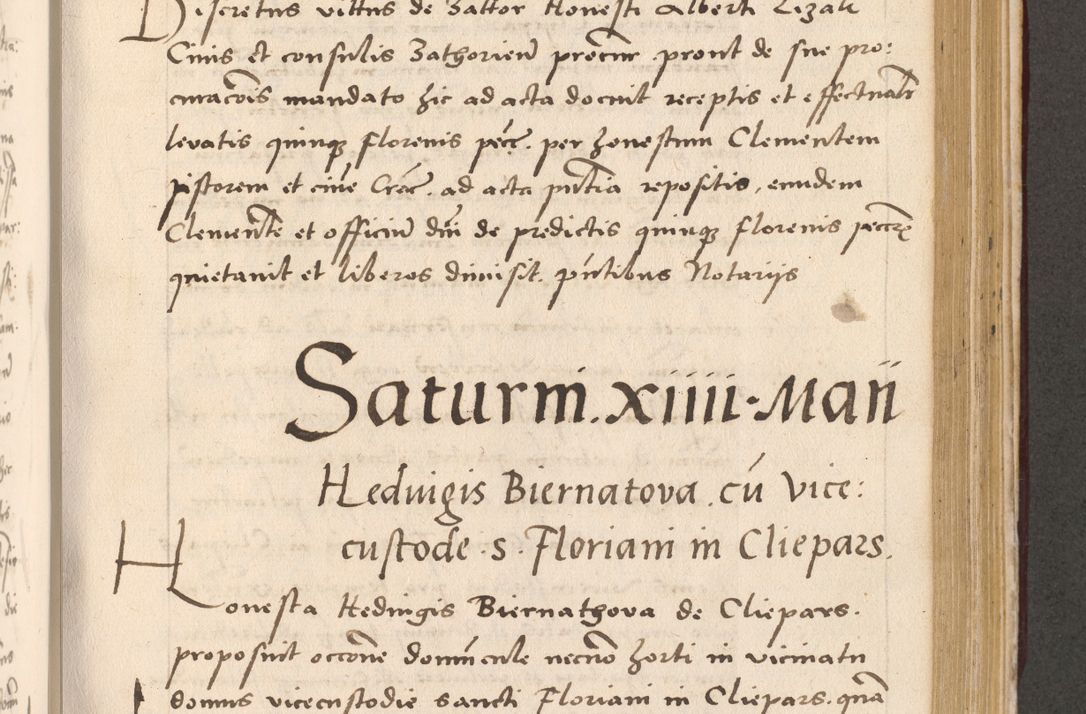 Discretus vittus de Zattor Honesti Alberti
Ciuis et consulis Zathorien̄ procur prout de sue pro:
curacōis mandato hic ad acta docuit receptis et effectual̄r
levatis quinqꝫ florenis pēc. per honestum Clementem
pistorem et ciuē Crac̄. ad acta pn̄tia repositis, eundem
Clementē et officiū dn̄i de predictis quinqꝫ florenis
quietauit et liberos dimisit. pn̄tibus Notarijs
Saturni. xiiii. Maii
Heduigis Biernatova. cū vice:
custode. s. Floriani in Cliepars.
Honesta Heduigis Biernathova de Cliepars.
proposuit occōne domūcule necnō horti in vicinatu
domus vicecustodie sancti Floriani in Cliepars. quā